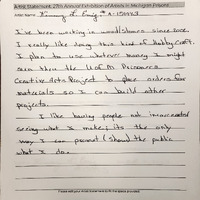 Artist Statement, 27th Annual Exhibition of Artists in Michigan Prisons
Artist Name:
I've been working in wood/shears since
I really like doing this kind of hobby craft.
I plan to use whatever money I might
earn thru the U of M Prisoners
Creative Arts Project to place orders for
materials so I can build other
projects.
I like having people not incarcerated
seeing what I make; its the only
way I can present (show) the public
what I do.